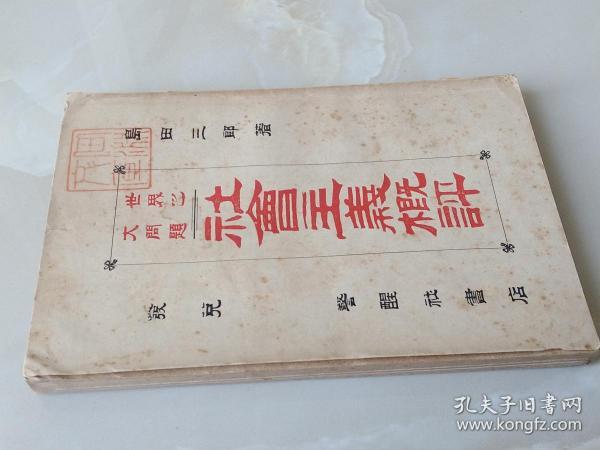 島田三郎著
世界之
大問題
社會主義概評
發兌 警醒社書店
孔夫子旧书网
www.kongfz.com